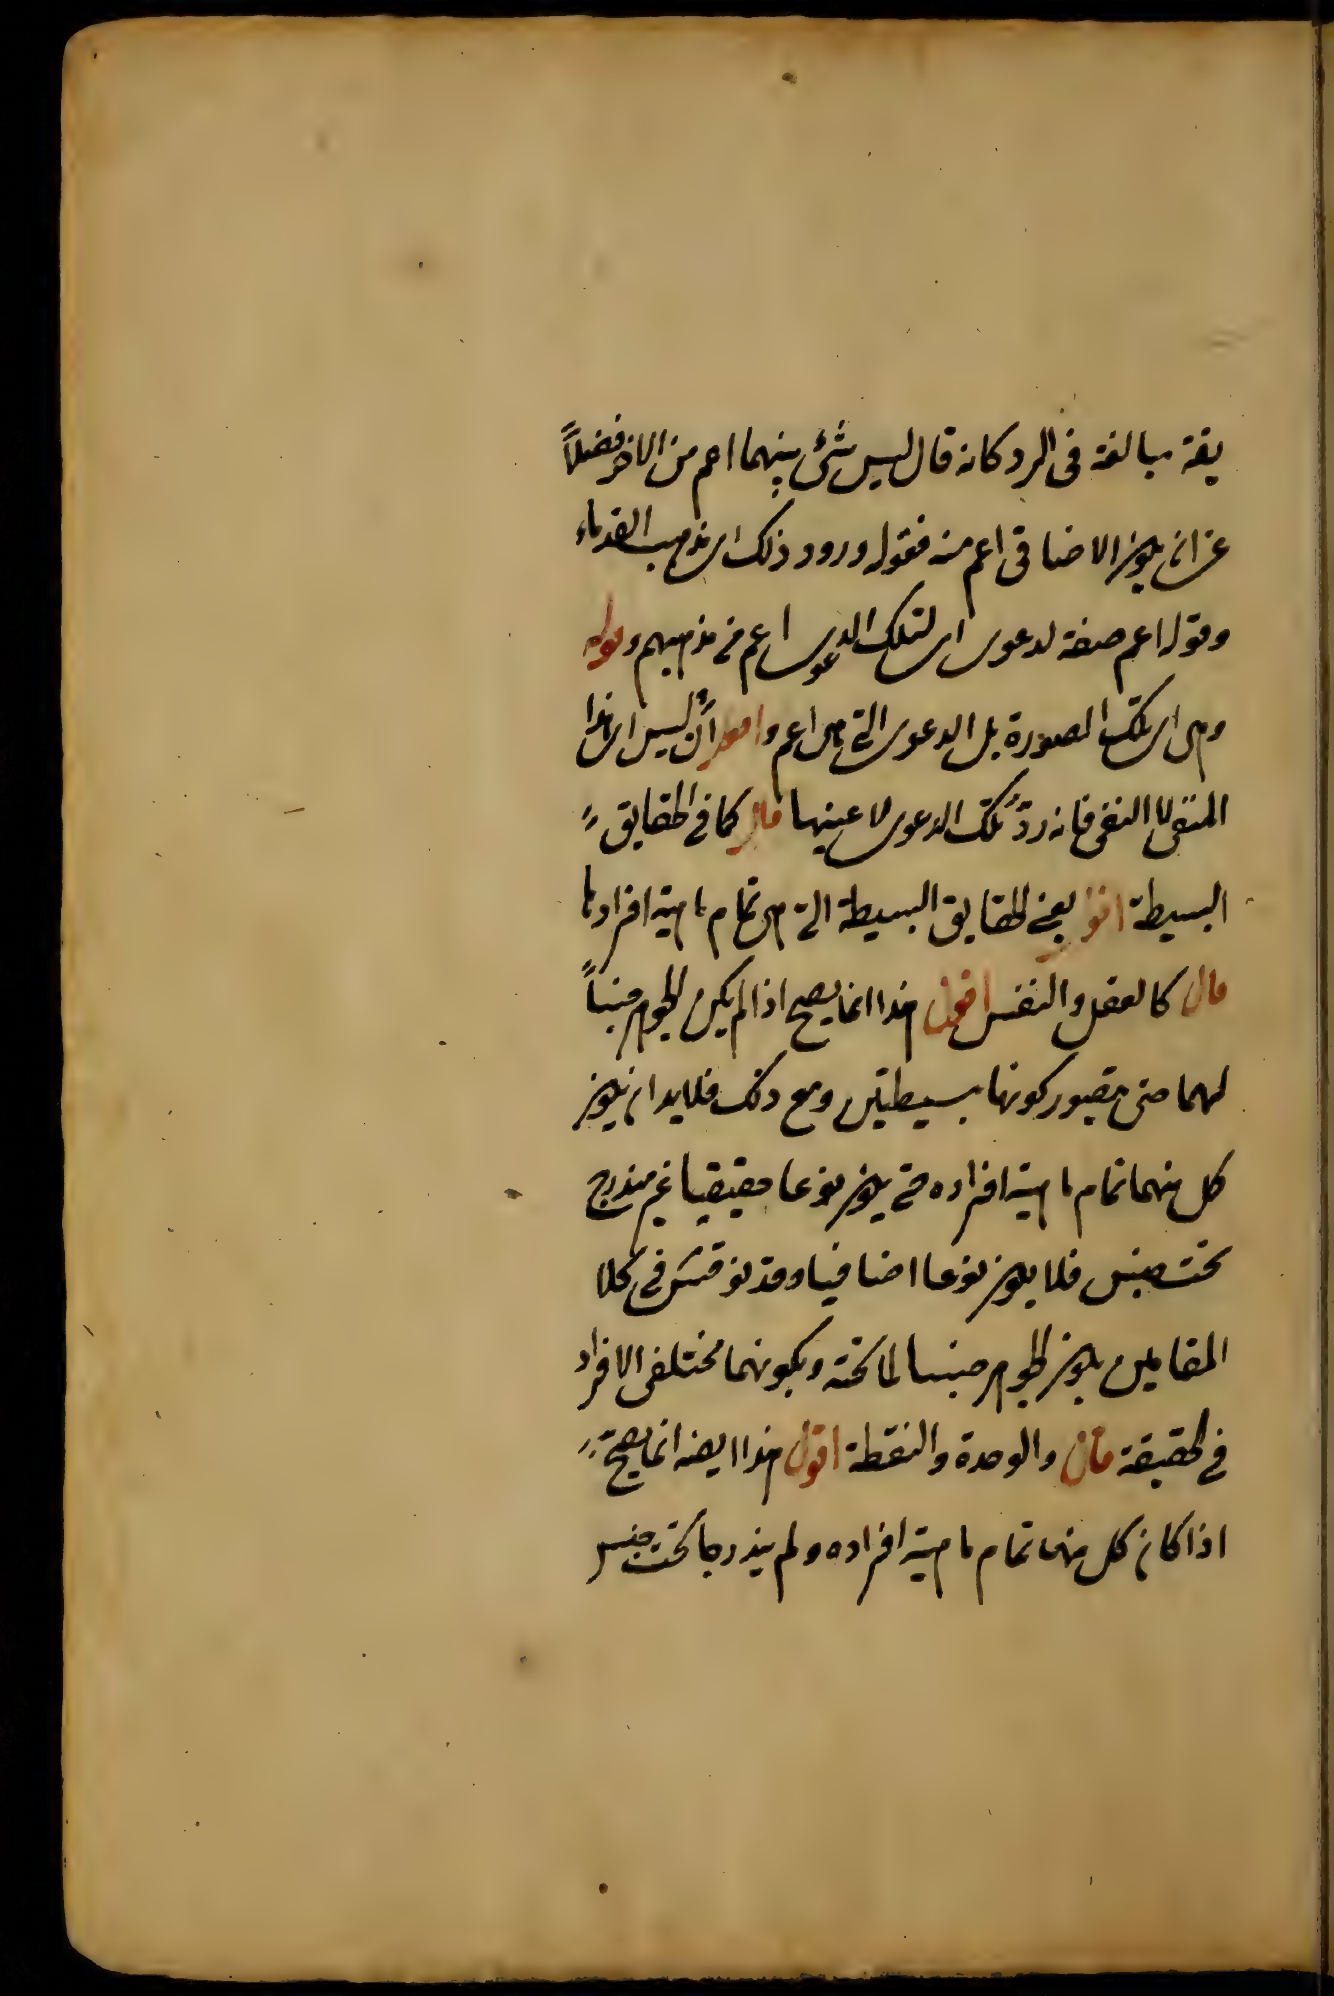 يقة مبالغة فى الرد كانه قال ليس شئ منهما اعم من الاخر فضلاً
عن ان يكون الاضافى اعم منه فقوله ورود ذلك اى مذهب القدماء
وقوله اعم صفة لدعوى اى لتلك الدعوى اعم من مذهبهم وقوله
وهى اى تلك الصورة بل الدعوى التى هى اعم واقول أن ليس اى هذا
المنفى لا النفى فانه ردّ تلك الدعوى لا عينها قال كما فى الحقايق
البسيطة اقول يعنى الحقايق البسيطة التى هى تمام ماهية افرادها
قال كالعقل والنفس اقول هذا انما يصح اذا لم يكن الجوهر جنساً
لهما حتى يتصور كونهما بسيطتين ومع ذلك فلا بد ان يكون
كل منهما تمام ماهية افراده حتى يكون نوعا حقيقيا غير مندرج
تحت جنس فلا يكون نوعا اضافيا وقد نوقش فى كلا
المقامين بكون الجوهر جنسا لما تحته وبكونهما مختلفى الافراد
فى الحقيقة قال والوحدة والنقطة اقول هذا ايضه انما يصح
اذا كان كل منهما تمام ماهية افراده ولم يندرجا تحت جنس